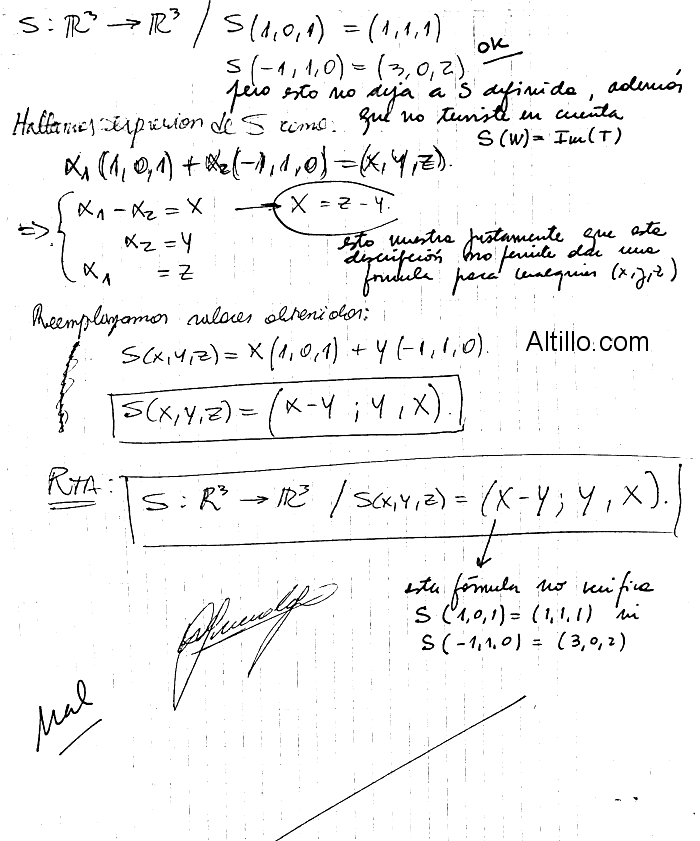 S : ℝ³ → ℝ³ / S(1,0,1) = (1,1,1)
S(-1,1,0) = (3,0,2) OK
pero esto no deja a S definida, además
que no tuviste en cuenta
S(W) = Im(T)
Hallamos expresion de S como:
α₁(1,0,1) + α₂(-1,1,0) = (X,Y,Z).
⇒ { α₁ - α₂ = X → X = Z - Y.
α₂ = Y
α₁ = Z
esto muestra justamente que esta
descripción no permite dar una
fórmula para cualquier (x,y,z)
Reemplazamos valores obtenidos:
S(X,Y,Z) = X(1,0,1) + Y(-1,1,0).
Altillo.com
S(X,Y,Z) = (X-Y ; Y, X).
RTA: S : ℝ³ → ℝ³ / S(X,Y,Z) = (X-Y ; Y, X).
esta fórmula no verifica
S(1,0,1) = (1,1,1) ni
S(-1,1,0) = (3,0,2)
Mal